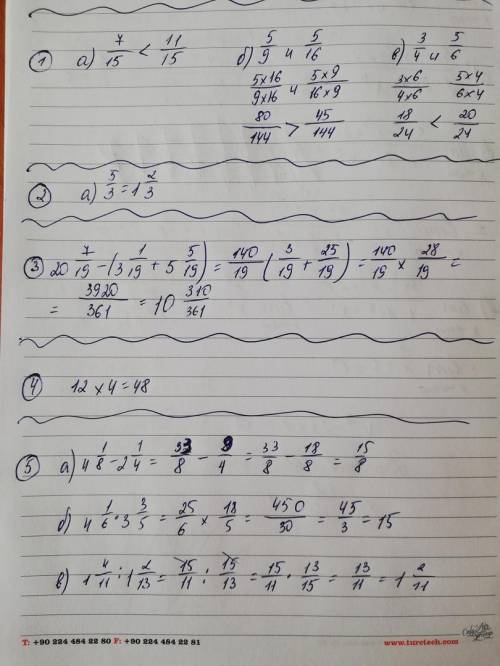 ① а) 7/15 < 11/15 б) 5/9 и 5/16 в) 3/4 и 5/6
5×16/9×16 и 5×9/16×9 3×6/4×6 5×4/6×4
80/144 > 45/144 18/24 < 20/24
② а) 5/3 = 1 2/3
③ 20 7/19 - (3 1/19 + 5 5/19) = 140/19 (3/19 + 25/19) = 140/19 × 28/19 =
= 3920/361 = 10 310/361
④ 12 × 4 = 48
⑤ а) 4 1/8 - 2 1/4 = 33/8 - 9/4 = 33/8 - 18/8 = 15/8
б) 4 1/6 · 3 3/5 = 25/6 × 18/5 = 450/30 = 45/3 = 15
в) 1 4/11 : 1 2/13 = 15/11 : 15/13 = 15/11 · 13/15 = 13/11 = 1 2/11
T: +90 224 484 22 80 F: +90 224 484 22 81 www.turctech.com